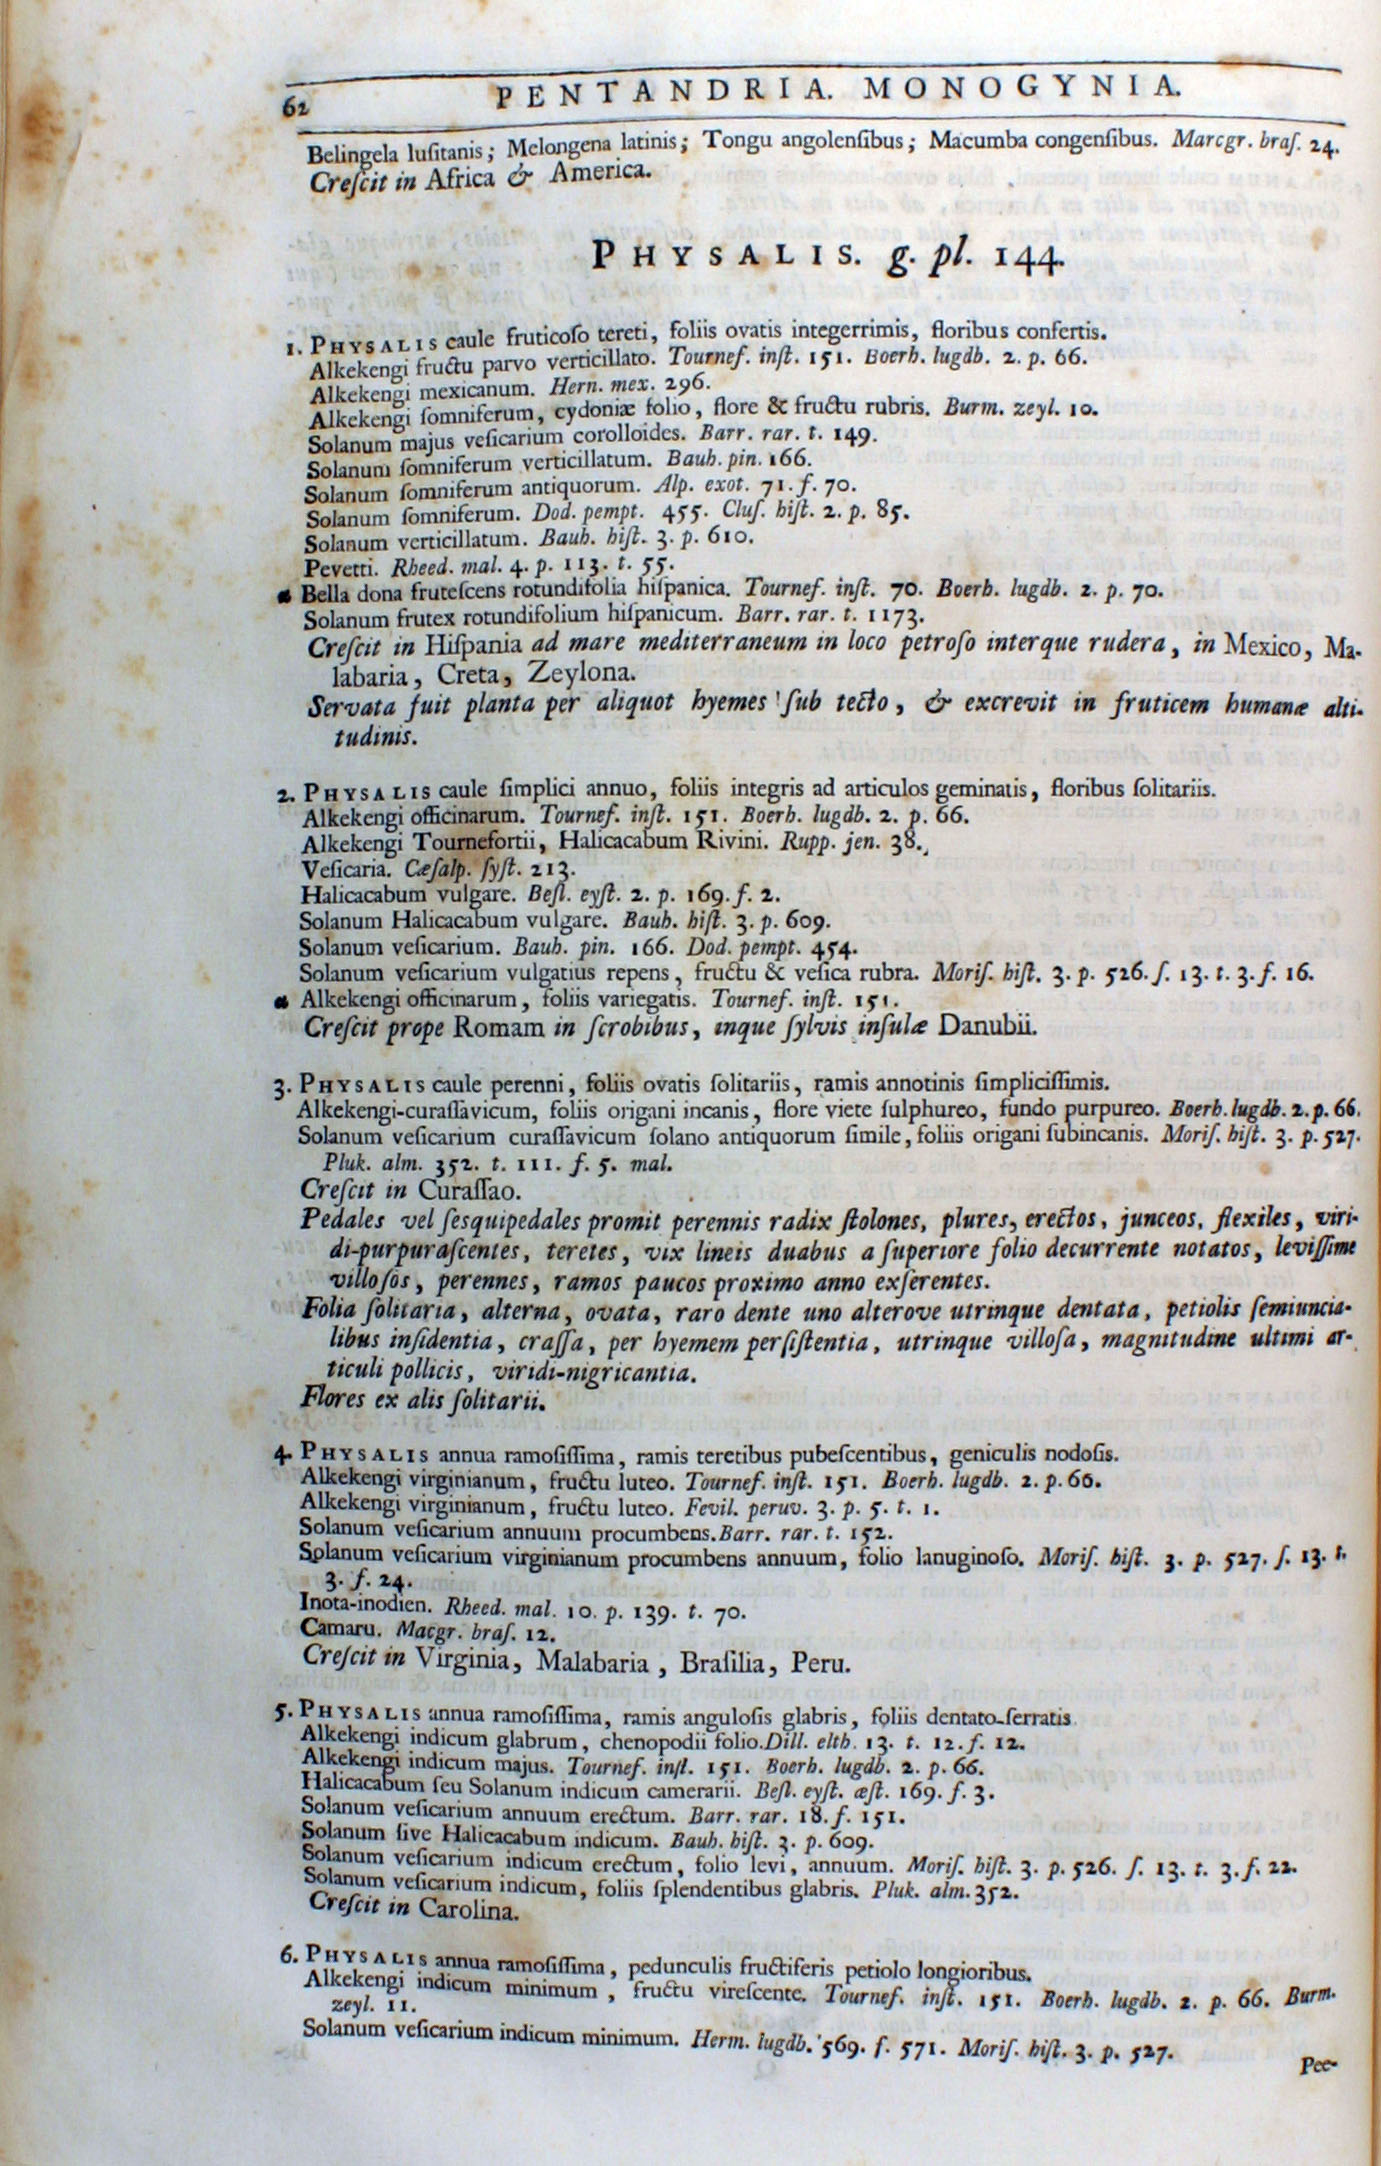 62
PENTANDRIA. MONOGYNIA.
Belingela luſitanis; Melongena latinis; Tongu angolenſibus; Macumba congenſibus. Marcgr. braſ. 24.
Creſcit in Africa & America.
PHYSALIS. g. pl. 144.
1. PHYSALIS caule fruticoſo tereti, foliis ovatis integerrimis, floribus confertis.
Alkekengi fructu parvo verticillato. Tournef. inſt. 151. Boerh. lugdb. 2. p. 66.
Alkekengi mexicanum. Hern. mex. 296.
Alkekengi ſomniferum, cydoniæ folio, flore & fructu rubris. Burm. zeyl. 10.
Solanum majus veſicarium corolloides. Barr. rar. t. 149.
Solanum ſomniferum verticillatum. Bauh. pin. 166.
Solanum ſomniferum antiquorum. Alp. exot. 71. f. 70.
Solanum ſomniferum. Dod. pempt. 455. Cluſ. hiſt. 2. p. 85.
Solanum verticillatum. Bauh. hiſt. 3. p. 610.
Pevetti. Rheed. mal. 4. p. 113. t. 55.
Bella dona fruteſcens rotundifolia hiſpanica. Tournef. inſt. 70. Boerh. lugdb. 2. p. 70.
Solanum frutex rotundifolium hiſpanicum. Barr. rar. t. 1173.
Creſcit in Hiſpania ad mare mediterraneum in loco petroſo interque rudera, in Mexico, Ma-
labaria, Creta, Zeylona.
Servata fuit planta per aliquot hyemes ſub tecto, & excrevit in fruticem humanæ alti-
tudinis.
2. PHYSALIS caule ſimplici annuo, foliis integris ad articulos geminatis, floribus ſolitariis.
Alkekengi officinarum. Tournef. inſt. 151. Boerh. lugdb. 2. p. 66.
Alkekengi Tournefortii, Halicacabum Rivini. Rupp. jen. 38.
Veſicaria. Cæſalp. ſyſt. 213.
Halicacabum vulgare. Beſl. eyſt. 2. p. 169. f. 2.
Solanum Halicacabum vulgare. Bauh. hiſt. 3. p. 609.
Solanum veſicarium. Bauh. pin. 166. Dod. pempt. 454.
Solanum veſicarium vulgatius repens, fructu & veſica rubra. Moriſ. hiſt. 3. p. 526. ſ. 13. t. 3. f. 16.
Alkekengi officinarum, foliis variegatis. Tournef. inſt. 151.
Creſcit prope Romam in ſcrobibus, inque ſylvis inſulæ Danubii.
3. PHYSALIS caule perenni, foliis ovatis ſolitariis, ramis annotinis ſimpliciſſimis.
Alkekengi-curaſſavicum, foliis origani incanis, flore viete ſulphureo, fundo purpureo. Boerh. lugdb. 2. p. 66.
Solanum veſicarium curaſſavicum ſolano antiquorum ſimile, foliis origani ſubincanis. Moriſ. hiſt. 3. p. 527.
Pluk. alm. 352. t. 111. f. 5. mal.
Creſcit in Curaſſao.
Pedales vel ſesquipedales promit perennis radix ſtolones, plures, erectos, junceos, flexiles, viri-
di-purpuraſcentes, teretes, vix lineis duabus a ſuperiore folio decurrente notatos, leviſſime
villoſos, perennes, ramos paucos proximo anno exſerentes.
Folia ſolitaria, alterna, ovata, raro dente uno alterove utrinque dentata, petiolis ſemiuncia-
libus inſidentia, craſſa, per hyemem perſiſtentia, utrinque villoſa, magnitudine ultimi ar-
ticuli pollicis, viridi-nigricantia.
Flores ex alis ſolitarii.
4. PHYSALIS annua ramoſiſſima, ramis teretibus pubeſcentibus, geniculis nodoſis.
Alkekengi virginianum, fructu luteo. Tournef. inſt. 151. Boerh. lugdb. 2. p. 66.
Alkekengi virginianum, fructu luteo. Fevil. peruv. 3. p. 5. t. 1.
Solanum veſicarium annuum procumbens. Barr. rar. t. 152.
Solanum veſicarium virginianum procumbens annuum, folio lanuginoſo. Moriſ. hiſt. 3. p. 527. ſ. 13. t.
3. f. 24.
Inota-inodien. Rheed. mal. 10. p. 139. t. 70.
Camaru. Macgr. braſ. 12.
Creſcit in Virginia, Malabaria, Braſilia, Peru.
5. PHYSALIS annua ramoſiſſima, ramis anguloſis glabris, foliis dentato-ſerratis.
Alkekengi indicum glabrum, chenopodii folio. Dill. elth. 13. t. 12. f. 12.
Alkekengi indicum majus. Tournef. inſt. 151. Boerh. lugdb. 2. p. 66.
Halicacabum ſeu Solanum indicum camerarii. Beſl. eyſt. æſt. 169. f. 3.
Solanum veſicarium annuum erectum. Barr. rar. 18. f. 151.
Solanum ſive Halicacabum indicum. Bauh. hiſt. 3. p. 609.
Solanum veſicarium indicum erectum, folio levi, annuum. Moriſ. hiſt. 3. p. 526. ſ. 13. t. 3. f. 22.
Solanum veſicarium indicum, foliis ſplendentibus glabris. Pluk. alm. 352.
Creſcit in Carolina.
6. PHYSALIS annua ramoſiſſima, pedunculis fructiferis petiolo longioribus.
Alkekengi indicum minimum, fructu vireſcente. Tournef. inſt. 151. Boerh. lugdb. 2. p. 66. Burm.
zeyl. 11.
Solanum veſicarium indicum minimum. Herm. lugdb. 569. f. 571. Moriſ. hiſt. 3. p. 527.
Pee-